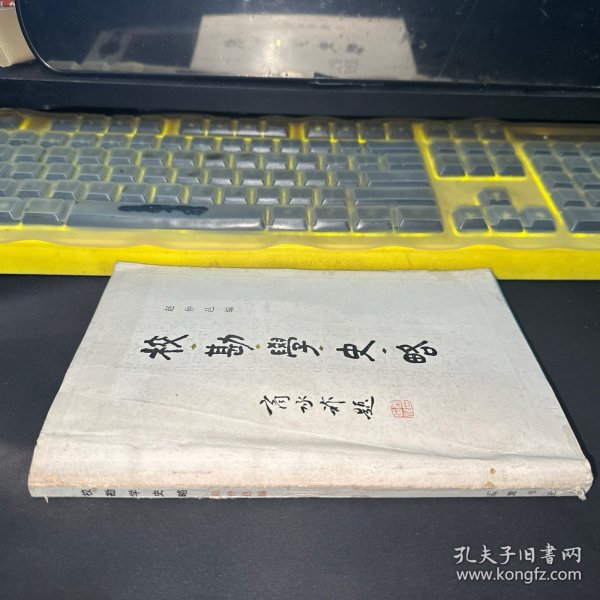 赵仲邑编
校·勘·學·史·略
商承祚題
校勘学史略 赵仲邑编 岳麓书社
孔夫子旧书网
www.kongfz.com